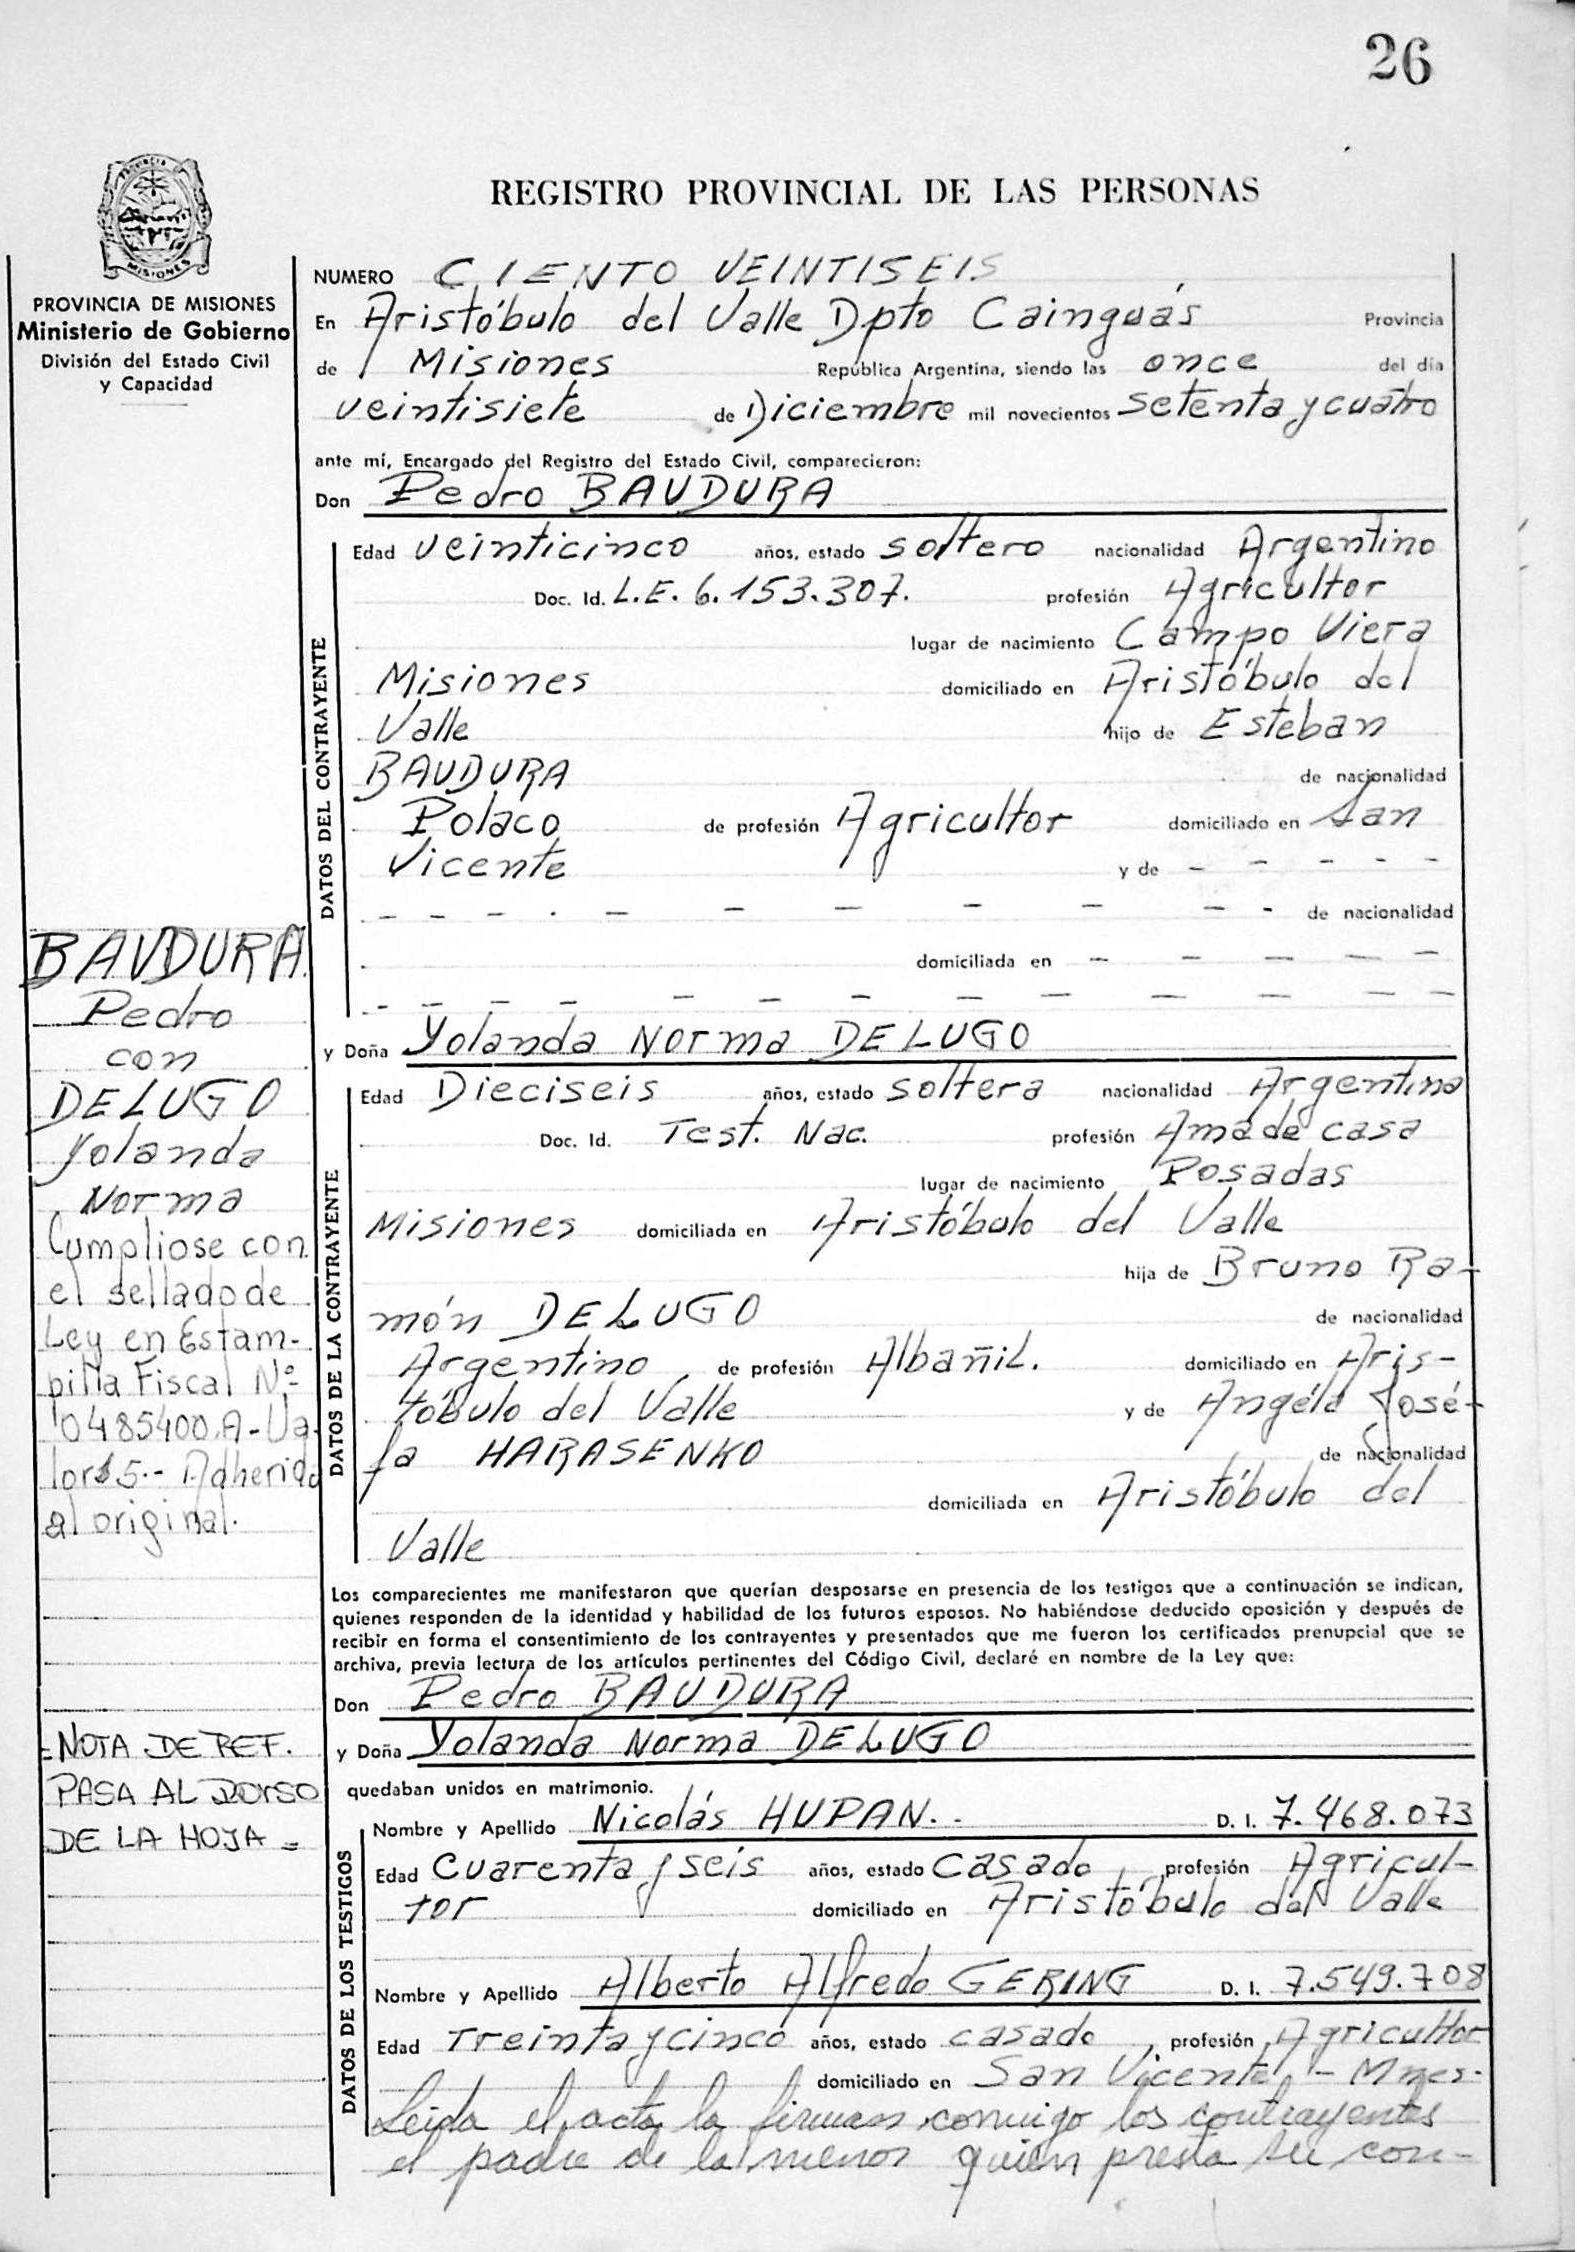 26
PROVINCIA
MISIONES
REGISTRO PROVINCIAL DE LAS PERSONAS
PROVINCIA DE MISIONES
Ministerio de Gobierno
División del Estado Civil
y Capacidad
NUMERO CIENTO VEINTISEIS
En Aristóbulo del Valle Dpto Cainguás Provincia
de Misiones República Argentina, siendo las once del día
veintisiete de Diciembre mil novecientos setenta y cuatro
ante mí, Encargado del Registro del Estado Civil, comparecieron:
Don Pedro BAUDURA
DATOS DEL CONTRAYENTE
Edad veinticinco años, estado soltero nacionalidad Argentino
Doc. Id. L.E. 6.153.307. profesión Agricultor
lugar de nacimiento Campo Viera
Misiones domiciliado en Aristóbulo del
Valle hijo de Esteban
BAUDURA de nacionalidad
Polaco de profesión Agricultor domiciliado en San
Vicente y de - - - - -
- - - - - - - - - - - de nacionalidad
domiciliada en - - - - -
- - - - - - - - - - - - -
y Doña Yolanda Norma DELUGO
DATOS DE LA CONTRAYENTE
Edad Dieciseis años, estado soltera nacionalidad Argentina
Doc. Id. Test. Nac. profesión Ama de casa
lugar de nacimiento Posadas
Misiones domiciliada en Aristóbulo del Valle
hija de Bruno Ra-
món DELUGO de nacionalidad
Argentino de profesión Albañil. domiciliado en Aris-
tóbulo del Valle y de Angéla José-
fa HARASENKO de nacionalidad
domiciliada en Aristóbulo del
Valle
Los comparecientes me manifestaron que querían desposarse en presencia de los testigos que a continuación se indican,
quienes responden de la identidad y habilidad de los futuros esposos. No habiéndose deducido oposición y después de
recibir en forma el consentimiento de los contrayentes y presentados que me fueron los certificados prenupcial que se
archiva, previa lectura de los artículos pertinentes del Código Civil, declaré en nombre de la Ley que:
Don Pedro BAUDURA
y Doña Yolanda Norma DELUGO
quedaban unidos en matrimonio.
DATOS DE LOS TESTIGOS
Nombre y Apellido Nicolás HUPAN.- D. I. 7.468.073
Edad Cuarenta y seis años, estado Casado, profesión Agricul-
tor domiciliado en Aristóbulo del Valle
Nombre y Apellido Alberto Alfredo GERING D. I. 7.549.708
Edad Treinta y cinco años, estado casado, profesión Agricultor
domiciliado en San Vicente - Mnes.
Leída el acta la firman conmigo los contrayentes
el padre de la menor quien presta su con-
BAUDURA
Pedro
con
DELUGO
Yolanda
Norma
Cumpliose con
el sellado de
Ley en Estam-
pilla Fiscal Nº
0485400.A-Va
lor $5.- Adherida
al original.
= NOTA DE REF.
PASA AL DORSO
DE LA HOJA =